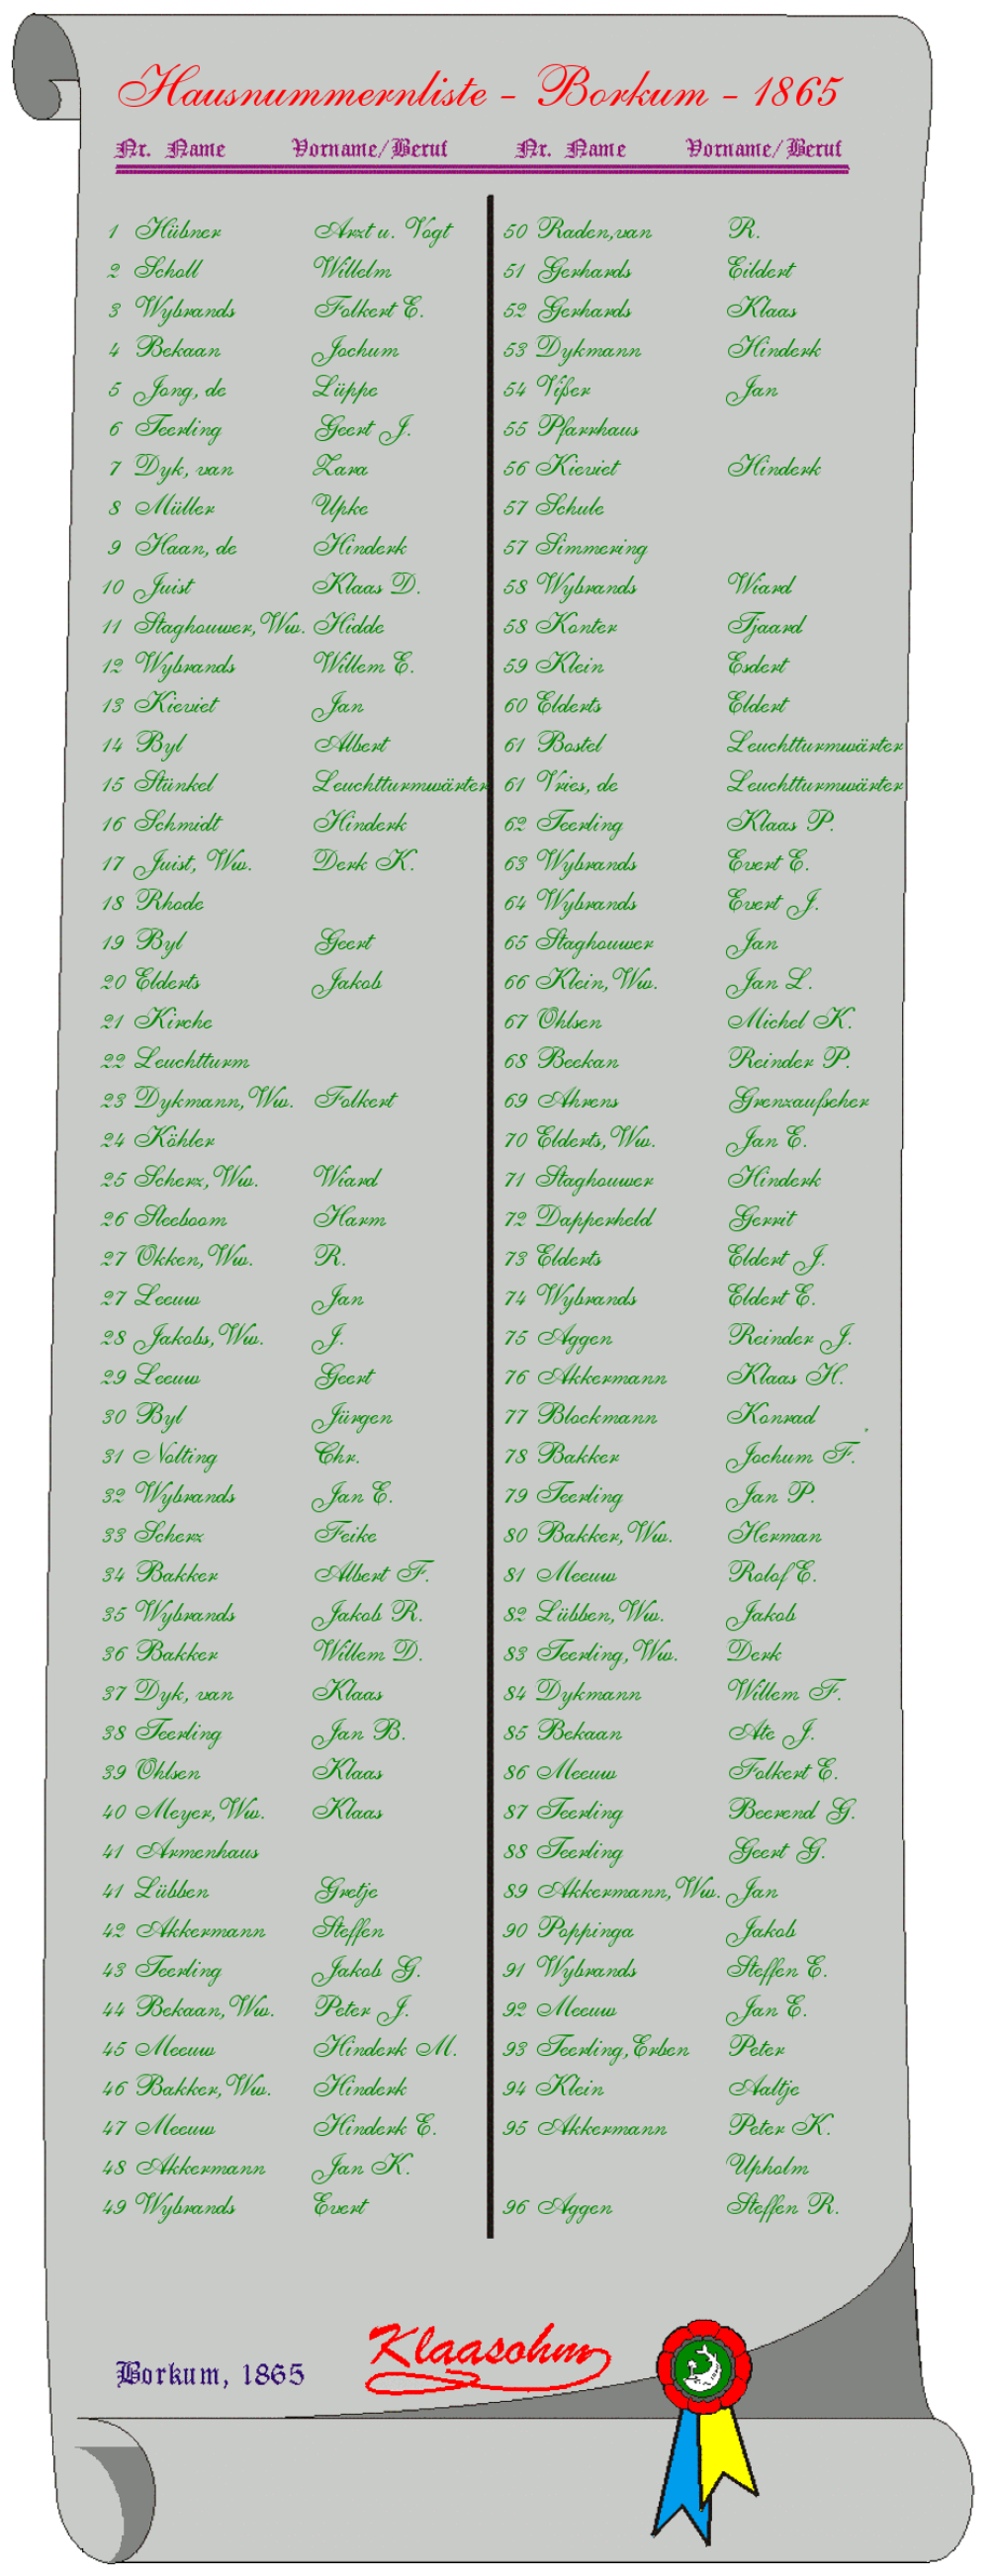 Hausnummernliste - Borkum - 1865
Nr. Name Vorname/Beruf Nr. Name Vorname/Beruf
1 Hübner Arzt u. Vogt
2 Scholl Willelm
3 Wybrands Folkert E.
4 Bekaan Jochum
5 Jong, de Lüppe
6 Teerling Geert J.
7 Dyk, van Zara
8 Müller Upke
9 Haan, de Hinderk
10 Juist Klaas D.
11 Staghouwer, Ww. Hidde
12 Wybrands Willem E.
13 Kieviet Jan
14 Byl Albert
15 Stünkel Leuchtturmwärter
16 Schmidt Hinderk
17 Juist, Ww. Derk K.
18 Rhode
19 Byl Geert
20 Elderts Jakob
21 Kirche
22 Leuchtturm
23 Dykmann, Ww. Folkert
24 Köhler
25 Scherz, Ww. Wiard
26 Sleeboom Harm
27 Okken, Ww. R.
27 Leeuw Jan
28 Jakobs, Ww. J.
29 Leeuw Geert
30 Byl Jürgen
31 Nolting Chr.
32 Wybrands Jan E.
33 Scherz Feike
34 Bakker Albert F.
35 Wybrands Jakob R.
36 Bakker Willem D.
37 Dyk, van Klaas
38 Teerling Jan B.
39 Ohlsen Klaas
40 Meyer, Ww. Klaas
41 Armenhaus
41 Lübben Gretje
42 Akkermann Steffen
43 Teerling Jakob G.
44 Bekaan, Ww. Peter J.
45 Meeuw Hinderk M.
46 Bakker, Ww. Hinderk
47 Meeuw Hinderk E.
48 Akkermann Jan K.
49 Wybrands Evert
50 Raden, van R.
51 Gerhards Eildert
52 Gerhards Klaas
53 Dykmann Hinderk
54 Vißer Jan
55 Pfarrhaus
56 Kieviet Hinderk
57 Schule
57 Simmering
58 Wybrands Wiard
58 Konter Tjaard
59 Klein Esdert
60 Elderts Eldert
61 Bostel Leuchtturmwärter
61 Vries, de Leuchtturmwärter
62 Teerling Klaas P.
63 Wybrands Evert E.
64 Wybrands Evert J.
65 Staghouwer Jan
66 Klein, Ww. Jan L.
67 Ohlsen Michel K.
68 Beekan Reinder P.
69 Ahrens Grenzaufseher
70 Elderts, Ww. Jan E.
71 Staghouwer Hinderk
72 Dapperheld Gerrit
73 Elderts Eldert J.
74 Wybrands Eldert E.
75 Aggen Reinder J.
76 Akkermann Klaas H.
77 Blockmann Konrad
78 Bakker Jochum F.
79 Teerling Jan P.
80 Bakker, Ww. Herman
81 Meeuw Rolof E.
82 Lübben, Ww. Jakob
83 Teerling, Ww. Derk
84 Dykmann Willem F.
85 Bekaan Ate J.
86 Meeuw Folkert E.
87 Teerling Beerend G.
88 Teerling Geert G.
89 Akkermann, Ww. Jan
90 Poppinga Jakob
91 Wybrands Steffen E.
92 Meeuw Jan E.
93 Teerling, Erben Peter
94 Klein Aaltje
95 Akkermann Peter K.
Upholm
96 Aggen Steffen R.
Klaasohm
Borkum, 1865